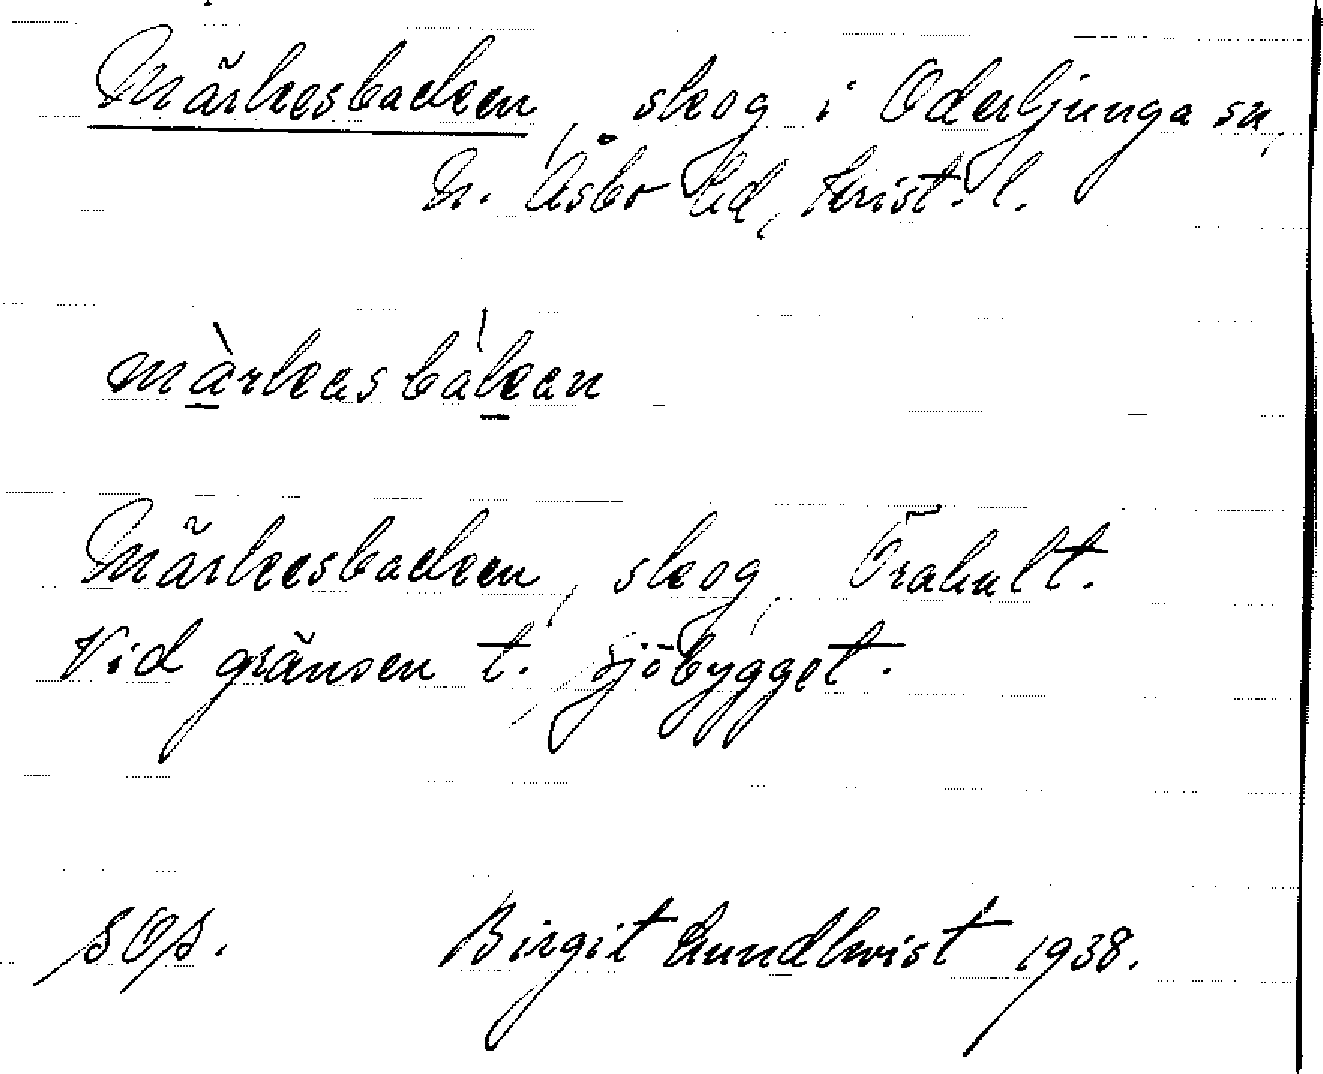 Märkesbacken, skog i Oderljunga sn,
N. Åsbo hd, Krist. l.
màrkasbakan
Märkesbacken, skog, Örahult.
Vid gränsen t. Sjöbygget.
sOps.
Birgit Lundkvist 1938.